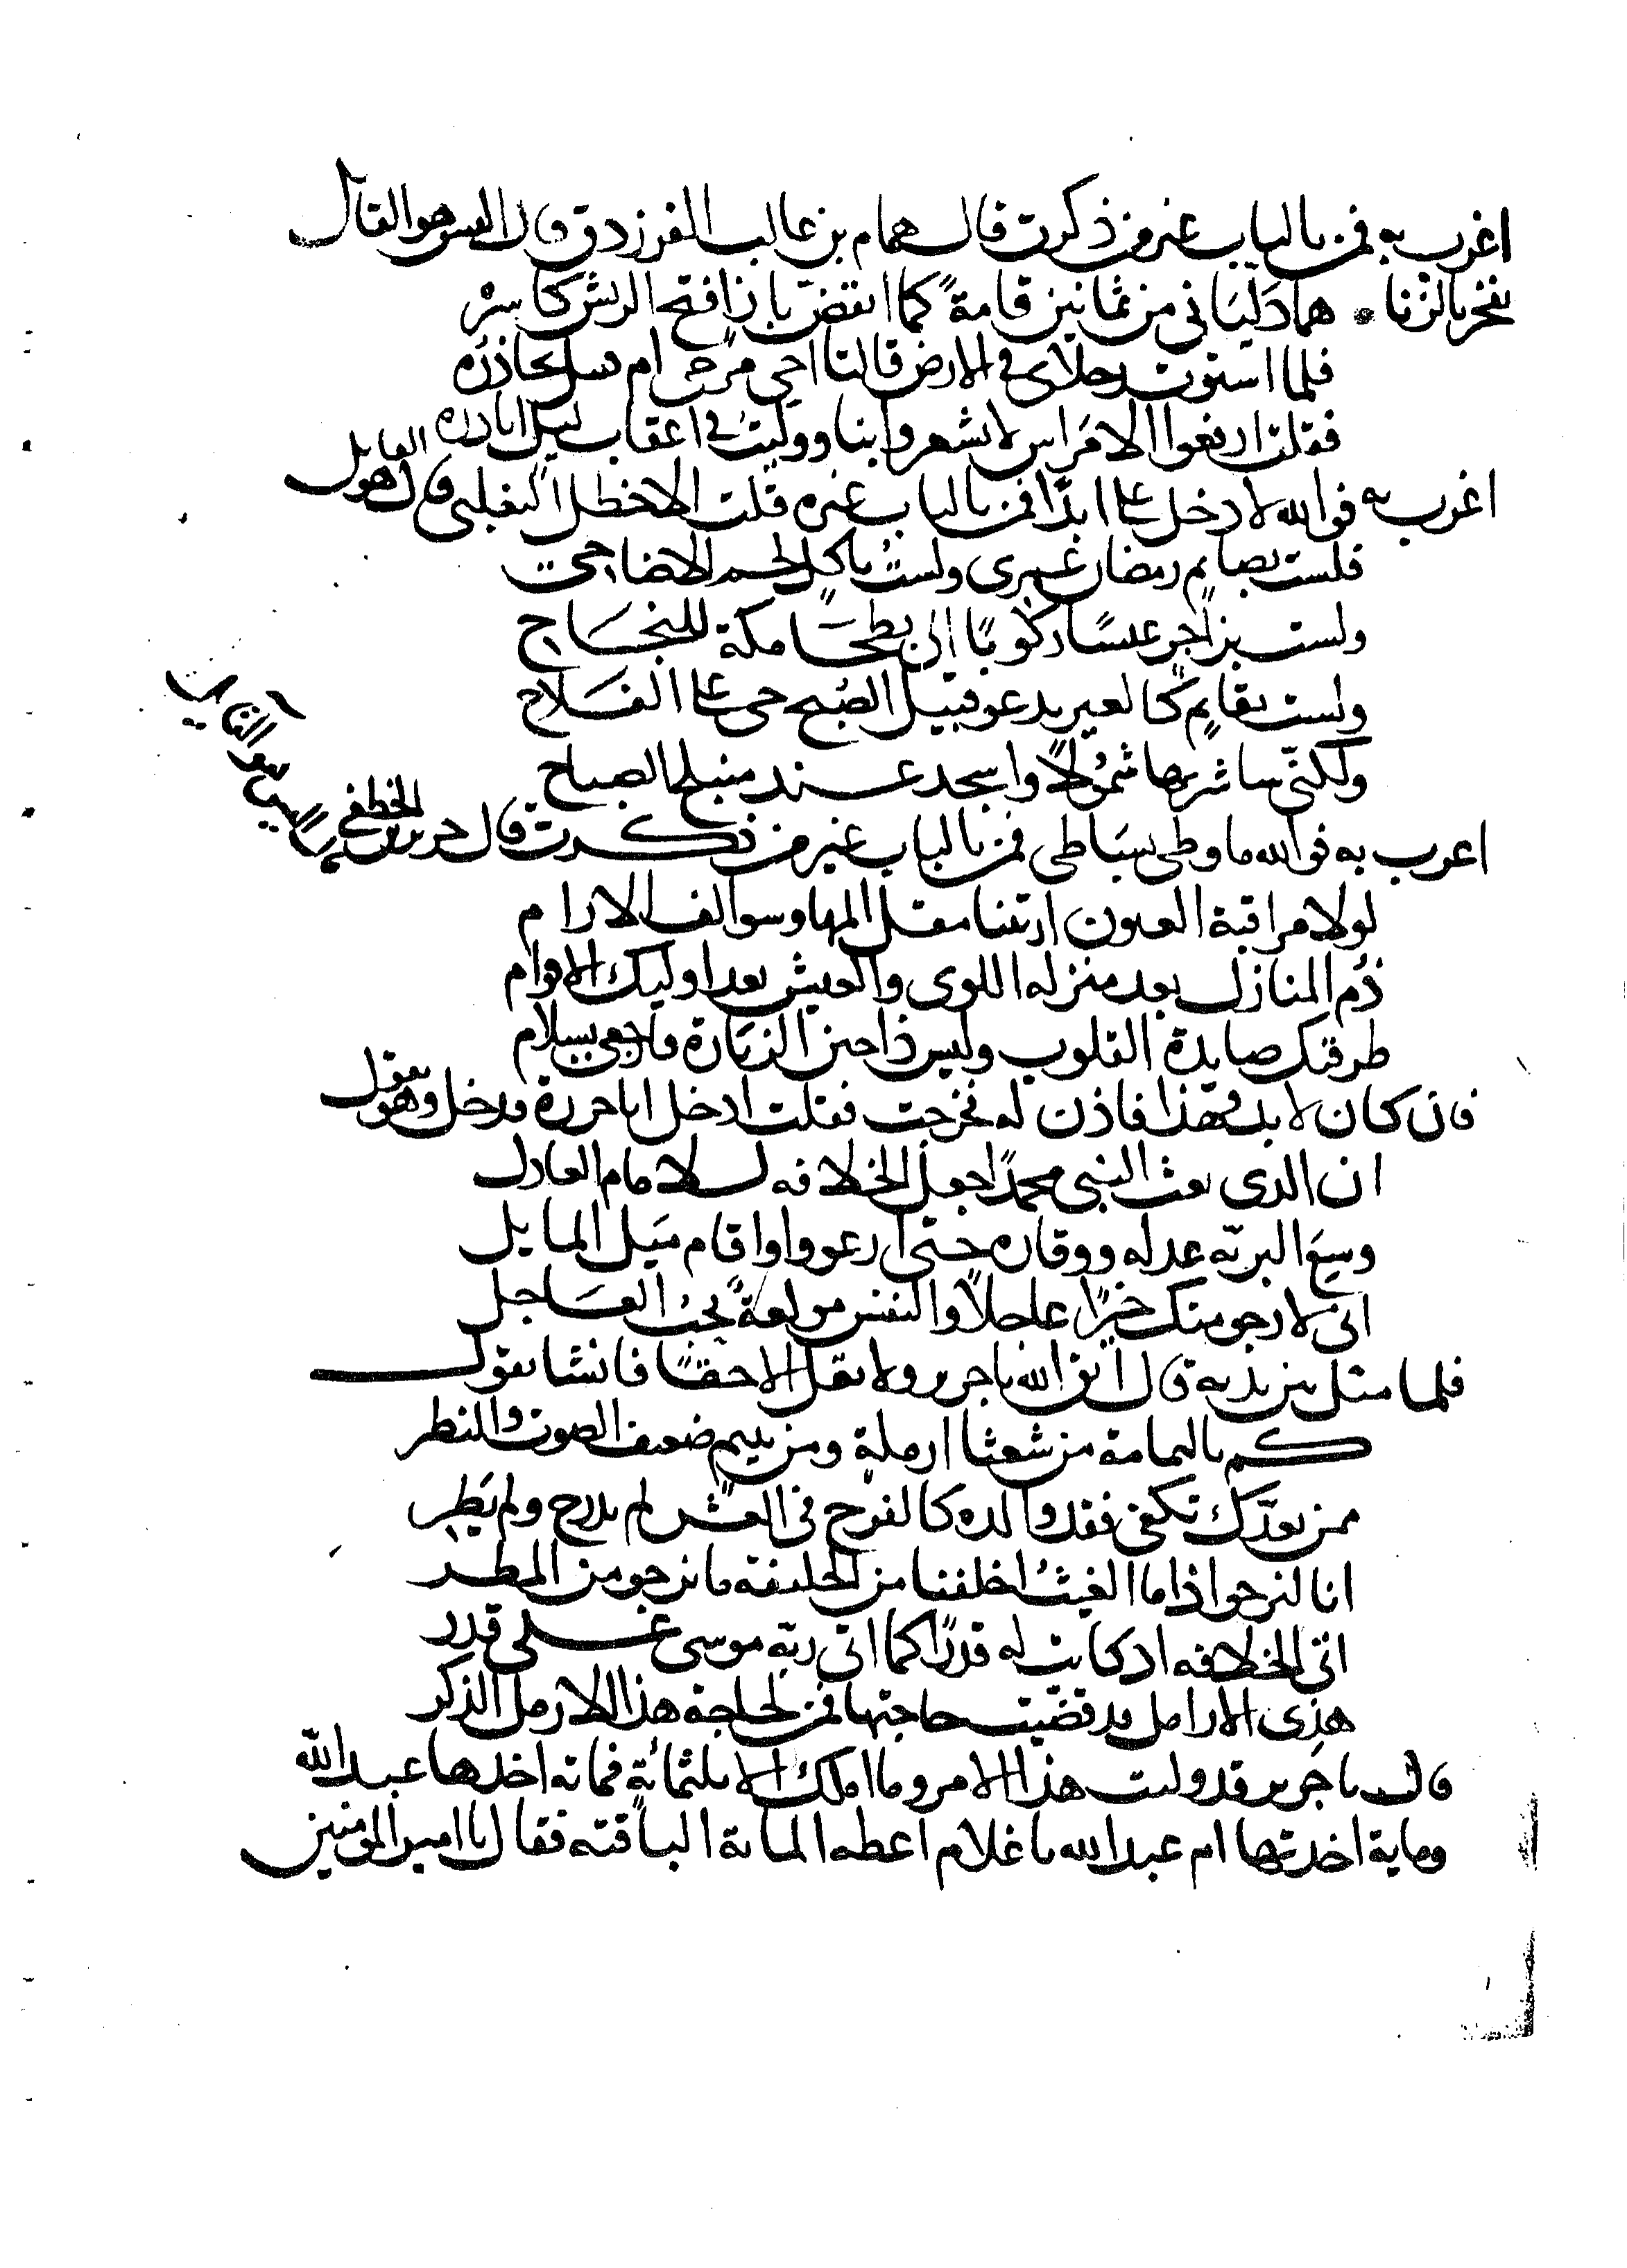 اغرب به فمن بالباب غير من ذكرت قال همام بن غالب الفرزدق قال اليس هو القائل
يفخر بالزنا • هما دَلّيَاني من ثمانين قامةً كما انقضّ باز افتح الريش كاسرْ
فلما استوت رجلاى في الارض قالتا احي مرجى ام قتيل نحاذره
فقلت ارفعوا الامراس لا يشعروا بنا ووليت في اعقاب ليل ابادره
اغرب به فوالله لا دخل على ابدًا فمن بالباب غيره قلت الاخطل التغلبي قال هو القايل
فلست بصايم رمضان عمرى ولست باكل لحم الاضاحى
ولست بزاجر عيسًا ركوبًا الى بطحَا مكة للنجَاح
ولست بقايم كالعير يدعو قبيل الصبح حى على الفَلاح
ولكنّى ساشربها شمولًا واسجد عند منبلج الصباح
اعرب به فوالله ما وطى بسَاطى فمن بالباب غير من ذكرت قال جرير بن الخطفى قال اليس هو القايل
لولا مراقبة العيون ارتنا مقل المها وسوالف الارام
ذُم المنازل بعد منزلة اللوى والعيش بعد اوليك الاقوام
طرقتك صايدة القلوب وليس ذا حين الزيَارة فارجعى بسلام
فان كان لا بد فهذا فاذن له فخرجت فقلت ادخل ابا حرزة فدخل وهو يقول
ان الذى بعث النبى محمدًا جعل الخلافه للامام العادل
وسِعَ البريّه عدله ووقاره حتى ارعووا واقام ميَل المايل
انى لارجو منك خيرًا عاجلًا والنفس مولعةٌ بحُب العَاجل
فلما مثل بين يديه قال اتق الله ياجرير ولا تقل الا حقًا فانشا يقول
كم باليمامة من شعثا ارملةٍ ومن يتيم ضعيف الصوت والنظر
ممن يعدّك تكفى فقد والده كالفرخ في العش لم يدرج ولم يَطِر
انا لنرجو اذا ما الغيثُ اخلفنا من الخليفة ما نرجو من المطر
اتى الخلافه اذ كانت له قدرًا كما اتى ربّه موسى على قدر
هذِى الارامل قد قضّيت حاجتها فمن لحاجة هذا الارمل الذكر
قال يا جرير قد وليت هذا الامر وما املك الا ثلثمائة فمائة اخذها عبد الله
وماية اخذتها ام عبد الله يا غلام اعطه المائة الباقته فقال يا امير المومنين